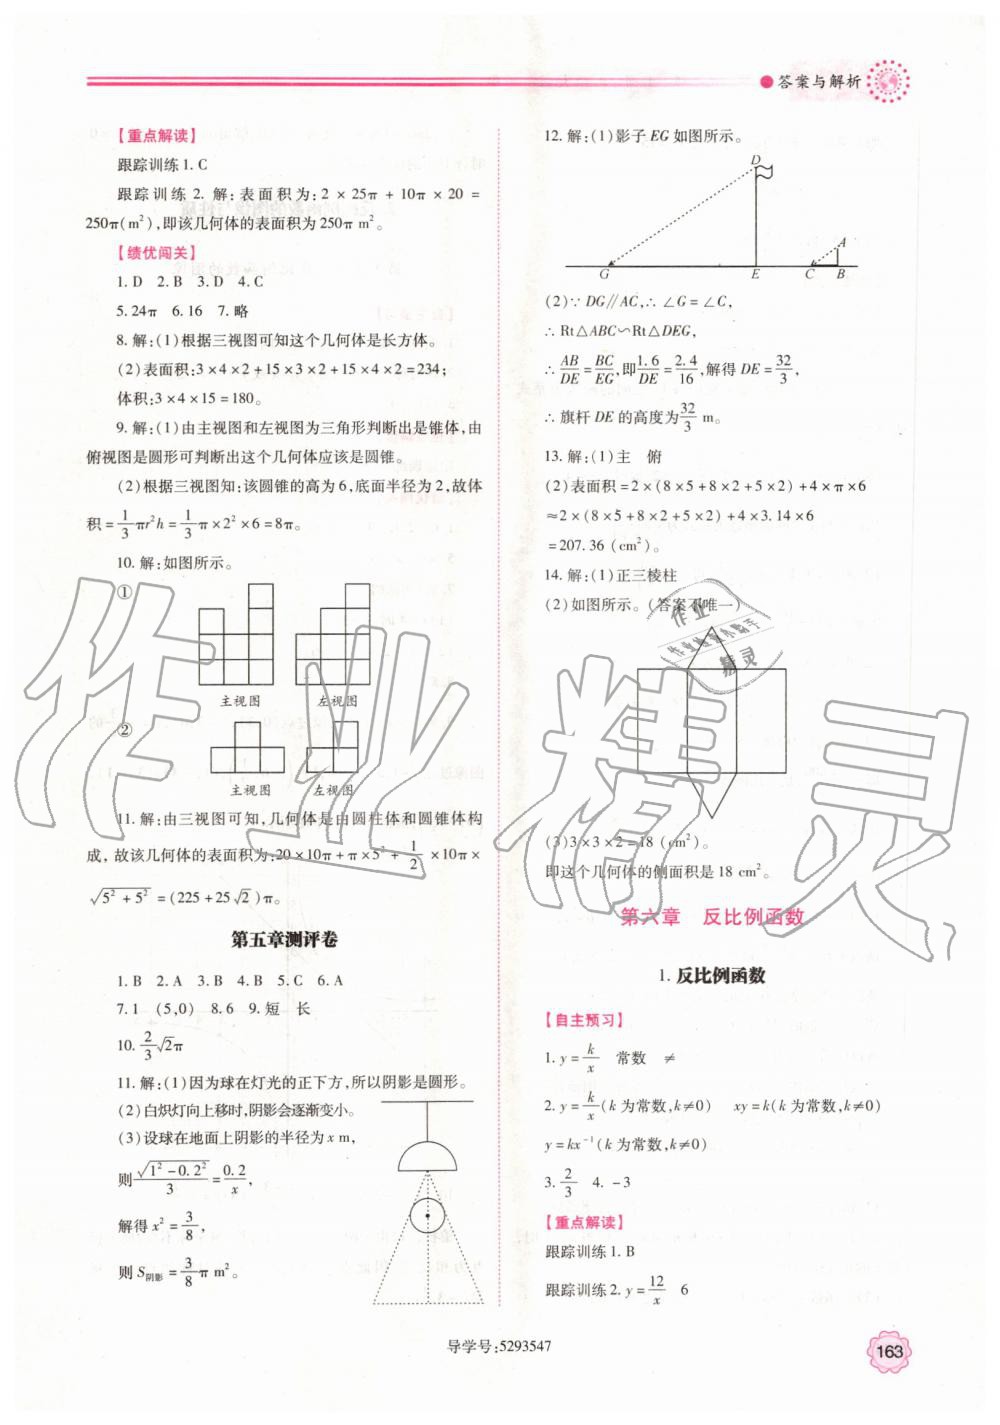 答案与解析
【重点解读】
跟踪训练1. C
跟踪训练2. 解:表面积为:2 × 25π + 10π × 20 =
250π(m²),即该几何体的表面积为250π m²。
【绩优闯关】
1. D 2. B 3. D 4. C
5. 24π 6. 16 7. 略
8. 解:(1)根据三视图可知这个几何体是长方体。
(2)表面积:3×4×2+15×3×2+15×4×2=234;
体积:3×4×15=180。
9. 解:(1)由主视图和左视图为三角形判断出是锥体,由
俯视图是圆形可判断出这个几何体应该是圆锥。
(2)根据三视图知:该圆锥的高为6,底面半径为2,故体
积=1/3πr²h=1/3π×2²×6=8π。
10. 解:如图所示。
①
主视图 左视图
②
主视图 左视图
11. 解:由三视图可知,几何体是由圆柱体和圆锥体构
成,故该几何体的表面积为:20×10π+π×5²+1/2×10π×
√(5²+5²)=(225+25√2)π。
第五章测评卷
1. B 2. A 3. B 4. B 5. C 6. A
7. 1 (5,0) 8. 6 9. 短 长
10. 2/3√2π
11. 解:(1)因为球在灯光的正下方,所以阴影是圆形。
(2)白炽灯向上移时,阴影会逐渐变小。
(3)设球在地面上阴影的半径为x m,
则√(1²-0.2²)/3=0.2/x,
解得x²=3/8,
则S阴影=3/8π m²。
12. 解:(1)影子EG如图所示。
D
A
G E C B
(2)∵DG∥AC,∴∠G=∠C,
∴Rt△ABC∽Rt△DEG,
∴AB/DE=BC/EG,即1.6/DE=2.4/16,解得DE=32/3,
∴旗杆DE的高度为32/3 m。
13. 解:(1)主 俯
(2)表面积=2×(8×5+8×2+5×2)+4×π×6
≈2×(8×5+8×2+5×2)+4×3.14×6
=207.36(cm²)。
14. 解:(1)正三棱柱
(2)如图所示。(答案不唯一)
(3)3×3×2=18(cm²)。
即这个几何体的侧面积是18 cm²。
第六章 反比例函数
1. 反比例函数
【自主预习】
1. y=k/x 常数 ≠
2. y=k/x(k为常数,k≠0) xy=k(k为常数,k≠0)
y=kx⁻¹(k为常数,k≠0)
3. 2/3 4. -3
【重点解读】
跟踪训练1. B
跟踪训练2. y=12/x 6
导学号:5293547
163
作业精灵